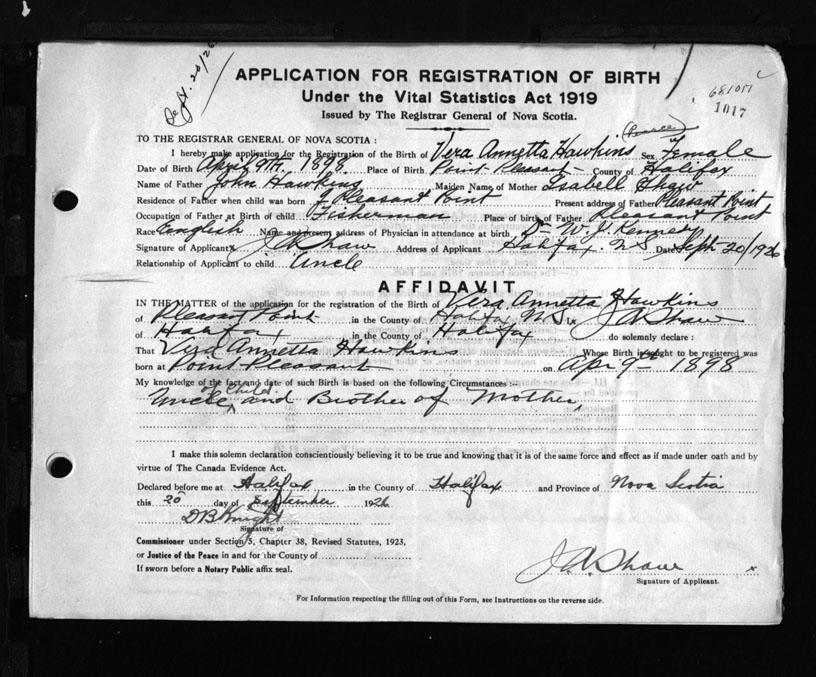 Sept. 20/26
APPLICATION FOR REGISTRATION OF BIRTH
Under the Vital Statistics Act 1919
Issued by The Registrar General of Nova Scotia.
1017
TO THE REGISTRAR GENERAL OF NOVA SCOTIA :
I hereby make application for the Registration of the Birth of Vera Annetta Hawkins Sex Female
Date of Birth April 9th, 1898. Place of Birth Point Pleasant County of Halifax
Name of Father John Hawkins Maiden Name of Mother Isabell Shaw
Residence of Father when child was born Pleasant Point Present address of Father Pleasant Point
Occupation of Father at Birth of child Fisherman Place of birth of Father Pleasant Point
Race English Name and present address of Physician in attendance at birth Dr W. J. Kennedy
Signature of Applicant x J. A. Shaw Address of Applicant Halifax N S Date Sept 20/1926
Relationship of Applicant to child Uncle
AFFIDAVIT
IN THE MATTER of the application for the registration of the Birth of Vera Annetta Hawkins
of Pleasant Point in the County of Halifax N.S. I, J A Shaw
of Halifax, in the County of Halifax do solemnly declare :
That Vera Annetta Hawkins Whose Birth is sought to be registered was
born at Point Pleasant on Apr 9th 1898
My knowledge of the fact and date of such Birth is based on the following Circumstances :-
Uncle of child and Brother of Mother,
I make this solemn declaration conscientiously believing it to be true and knowing that it is of the same force and effect as if made under oath and by
virtue of The Canada Evidence Act.
Declared before me at Halifax in the County of Halifax and Province of Nova Scotia
this 20 day of September 1926
D B Knight
Signature of
Commissioner under Section 5, Chapter 38, Revised Statutes, 1923,
or Justice of the Peace in and for the County of
If sworn before a Notary Public affix seal.
J. A. Shaw x
Signature of Applicant.
For Information respecting the filling out of this Form, see Instructions on the reverse side.